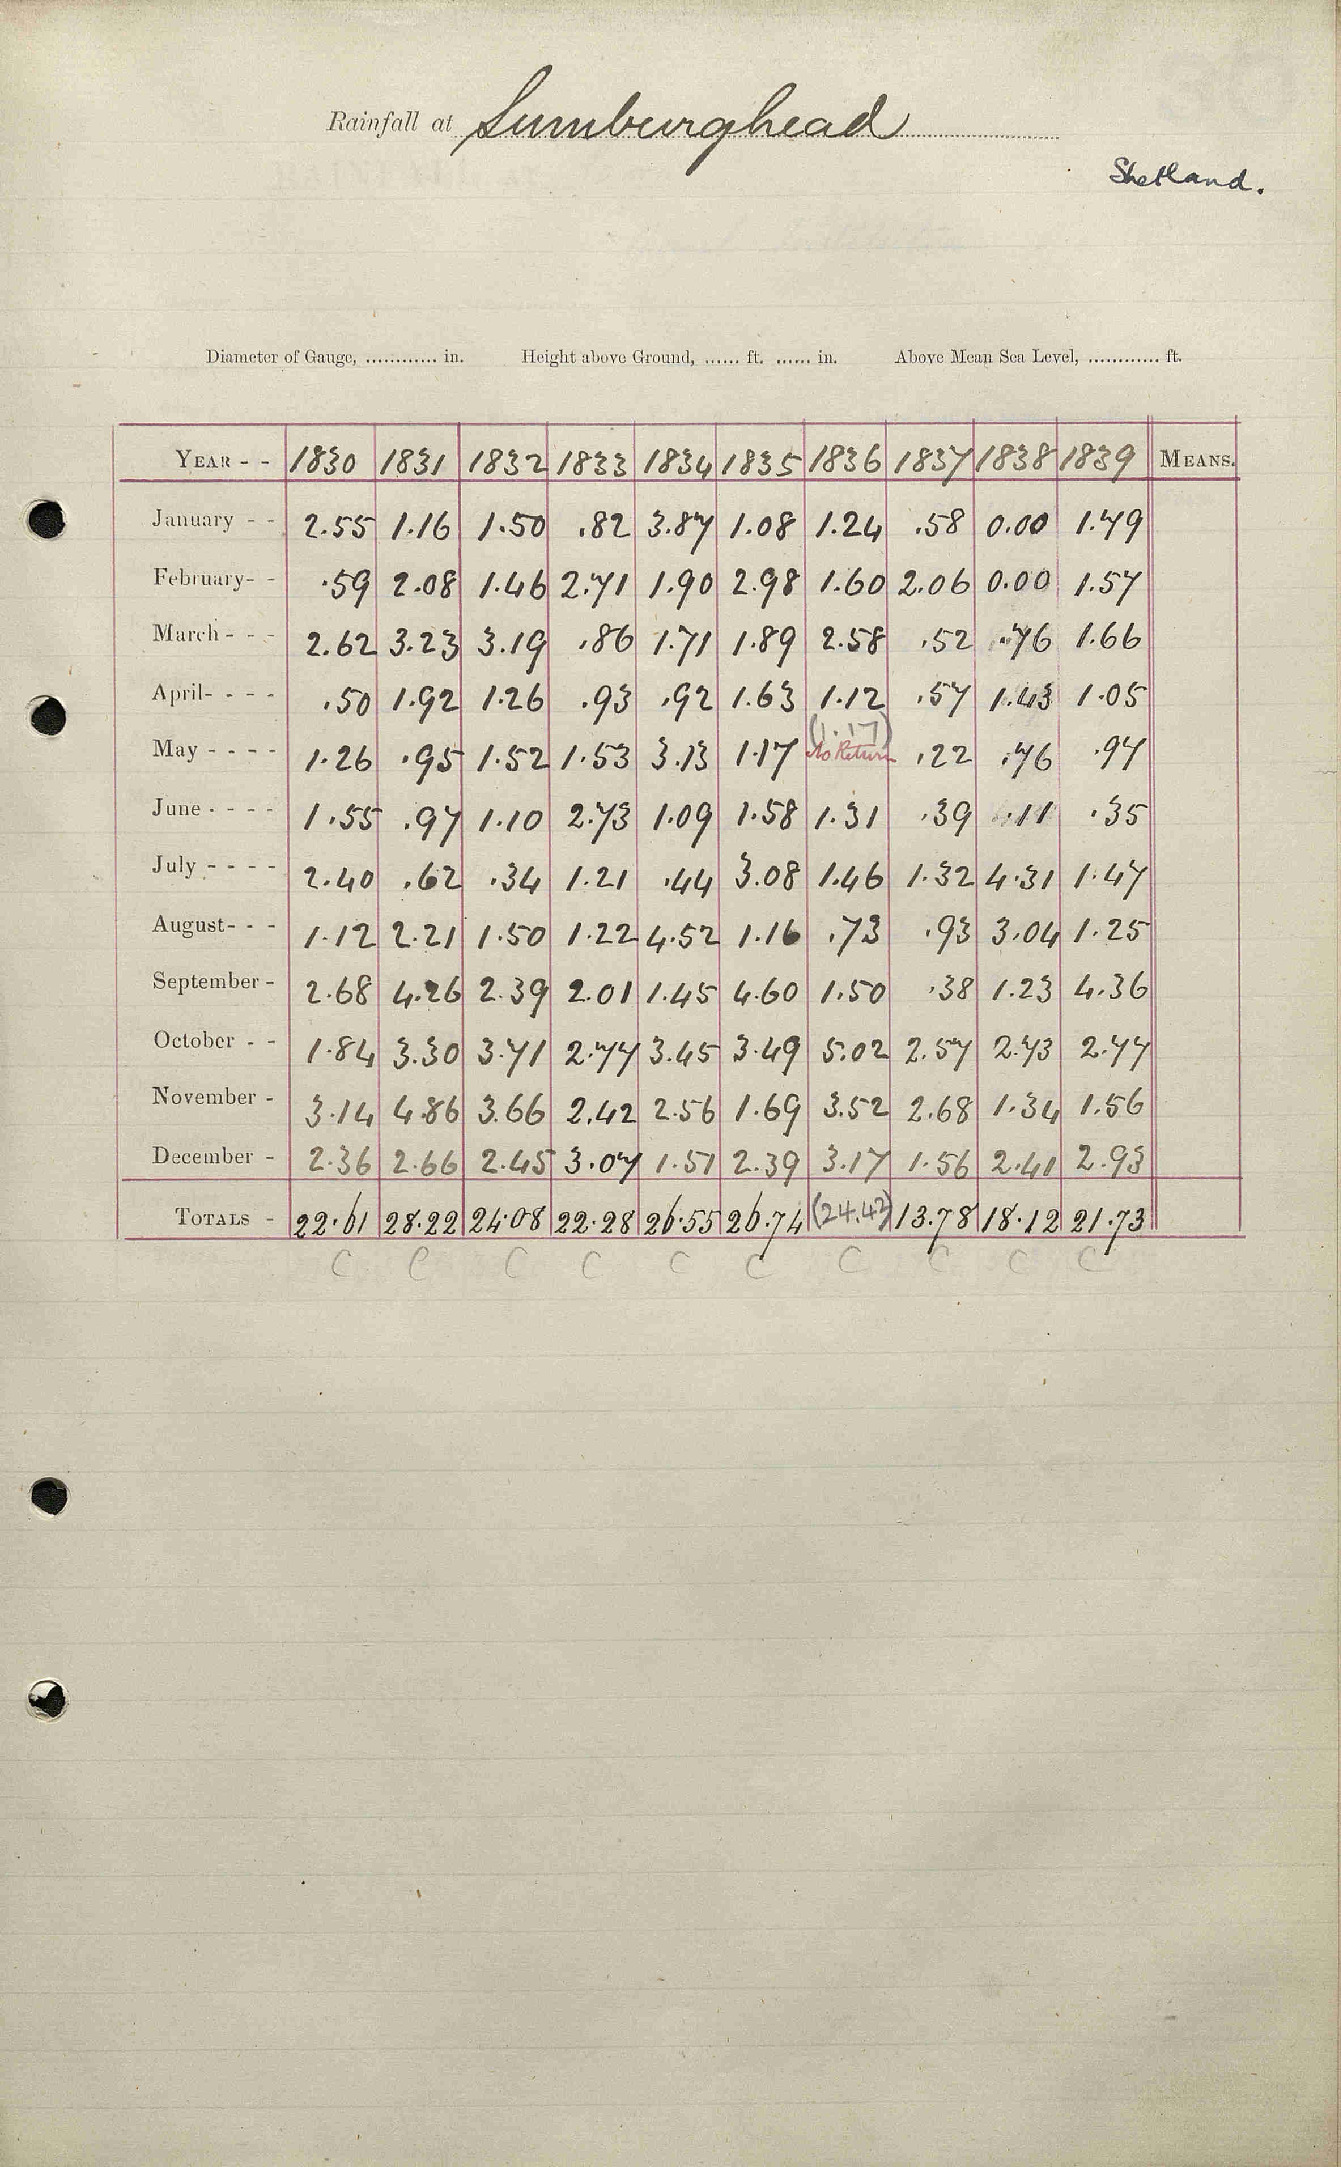 Rainfall at Sumburghead
Shetland.
Diameter of Gauge, ............ in. Height above Ground, ...... ft. ...... in. Above Mean Sea Level, ............ ft.
YEAR - - 1830 1831 1832 1833 1834 1835 1836 1837 1838 1839 MEANS.
January - - 2.55 1.16 1.50 .82 3.87 1.08 1.24 .58 0.00 1.79
February- - .59 2.08 1.46 2.71 1.90 2.98 1.60 2.06 0.00 1.57
March - - - 2.62 3.23 3.19 .86 1.71 1.89 2.58 .52 .76 1.66
April- - - - .50 1.92 1.26 .93 .92 1.63 1.12 .57 1.43 1.05
(1.17)
May - - - - 1.26 .95 1.52 1.53 3.13 1.17 No Return .22 .76 .97
June - - - - 1.55 .97 1.10 2.73 1.09 1.58 1.31 .39 .11 .35
July - - - - 2.40 .62 .34 1.21 .44 3.08 1.46 1.32 4.31 1.47
August- - - 1.12 2.21 1.50 1.22 4.52 1.16 .73 .93 3.04 1.25
September - 2.68 4.26 2.39 2.01 1.45 4.60 1.50 .38 1.23 4.36
October - - 1.84 3.30 3.71 2.77 3.45 3.49 5.02 2.57 2.73 2.77
November - 3.14 4.86 3.66 2.42 2.56 1.69 3.52 2.68 1.34 1.56
December - 2.36 2.66 2.45 3.07 1.51 2.39 3.17 1.56 2.41 2.93
TOTALS - 22.61 28.22 24.08 22.28 26.55 26.74 (24.42) 13.78 18.12 21.73
C C C C C C C C C C